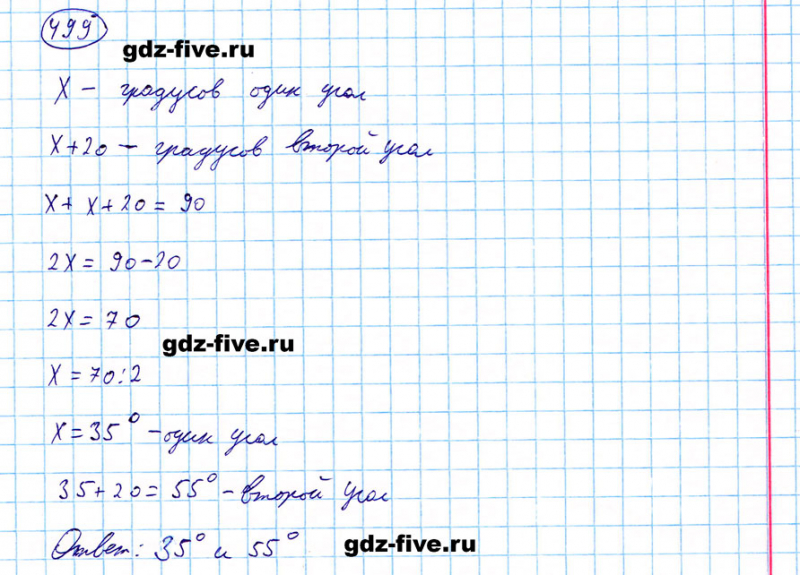 499
gdz-five.ru
х – градусов один угол
х+20 – градусов второй угол
х+ х+20= 90
2х= 90-20
2х= 70
gdz-five.ru
х =70:2
х=35° -один угол
35+20= 55° - второй угол
Ответ: 35° и 55°
gdz-five.ru